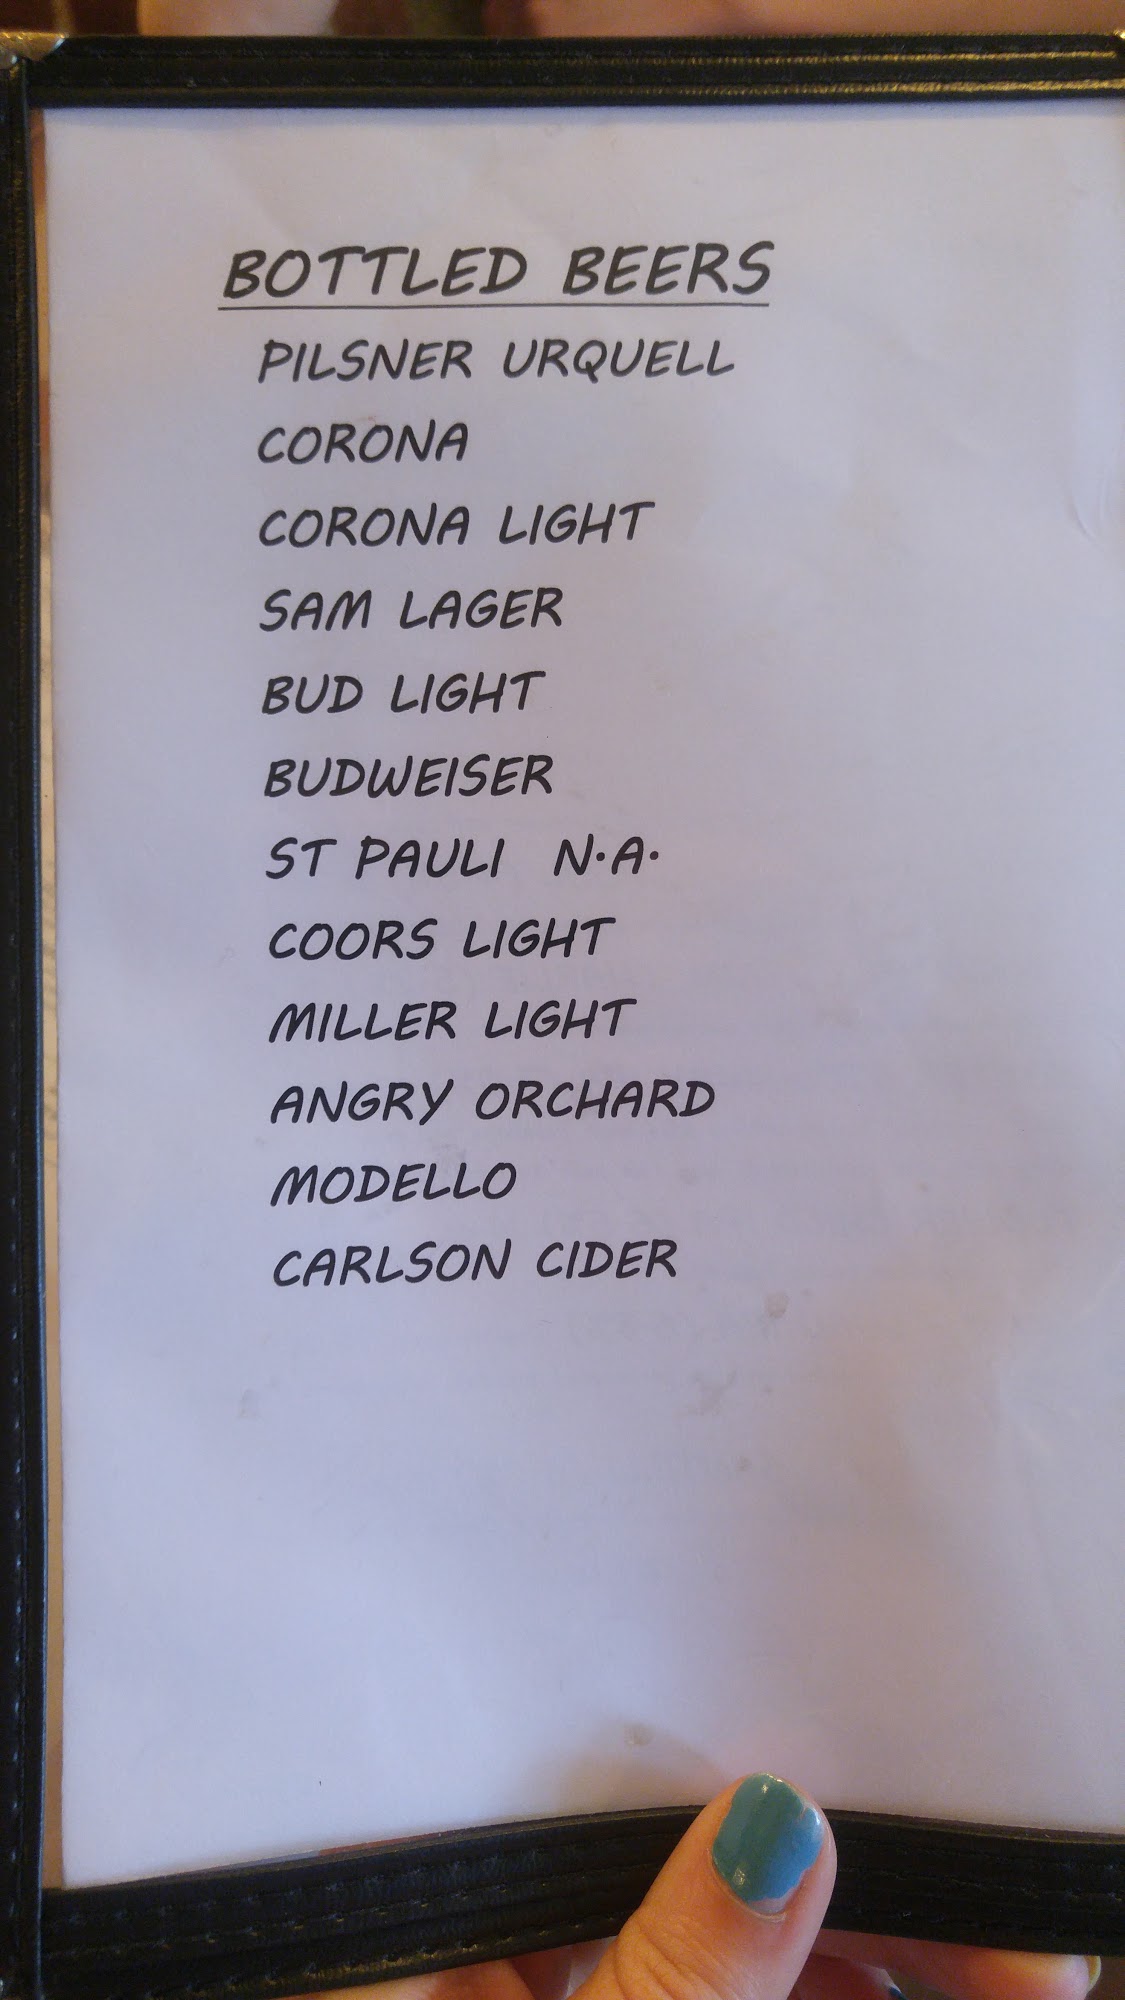 BOTTLED BEERS
PILSNER URQUELL
CORONA
CORONA LIGHT
SAM LAGER
BUD LIGHT
BUDWEISER
ST PAULI N.A.
COORS LIGHT
MILLER LIGHT
ANGRY ORCHARD
MODELLO
CARLSON CIDER